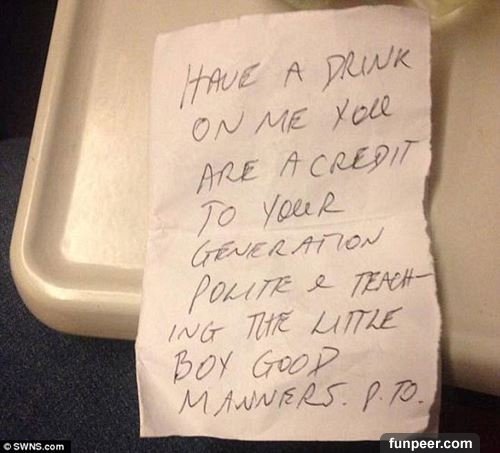 HAVE A DRINK
ON ME YOU
ARE A CREDIT
TO YOUR
GENERATION
POLITE & TEACH-
ING THE LITTLE
BOY GOOD
MANNERS. P.TO.
© SWNS.com
funpeer.com